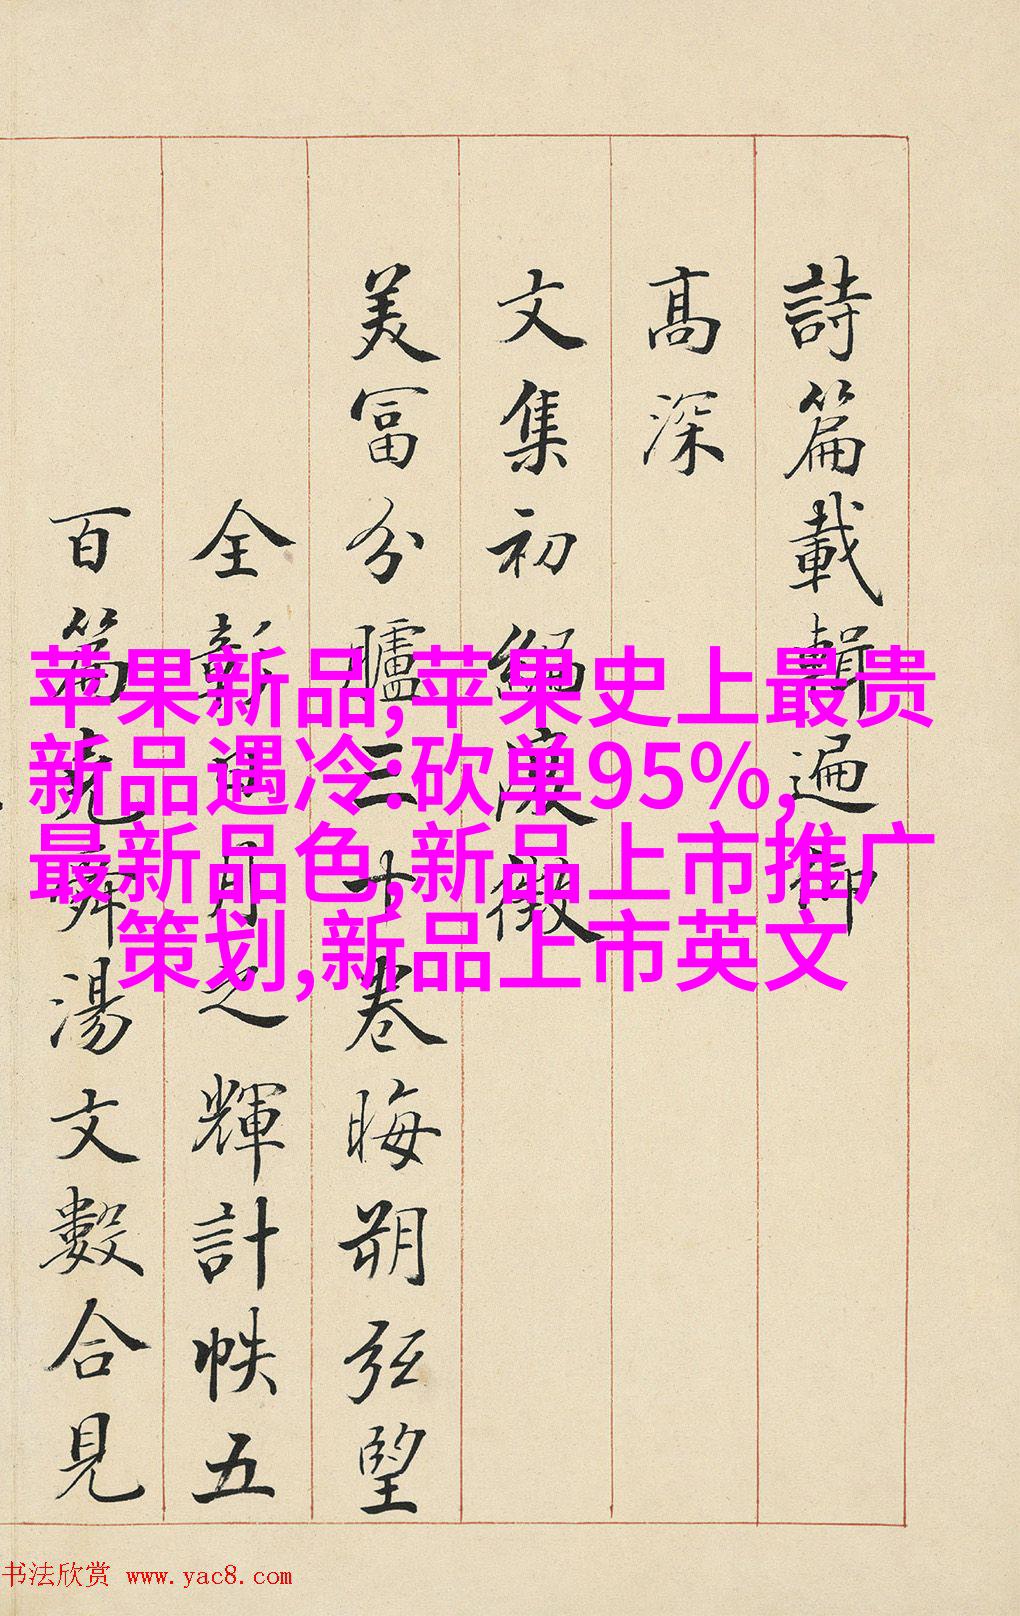 詩篇載輯遍仰
高深
文集初編復徵
美富分臚三十卷晦朔弦望
全彰日月之輝計帙五
百篇堯舜湯文數合見
苹果新品,苹果史上最贵
新品遇冷:砍单95%,
最新品色,新品上市推广
策划,新品上市英文
书法欣赏 www.yac8.com